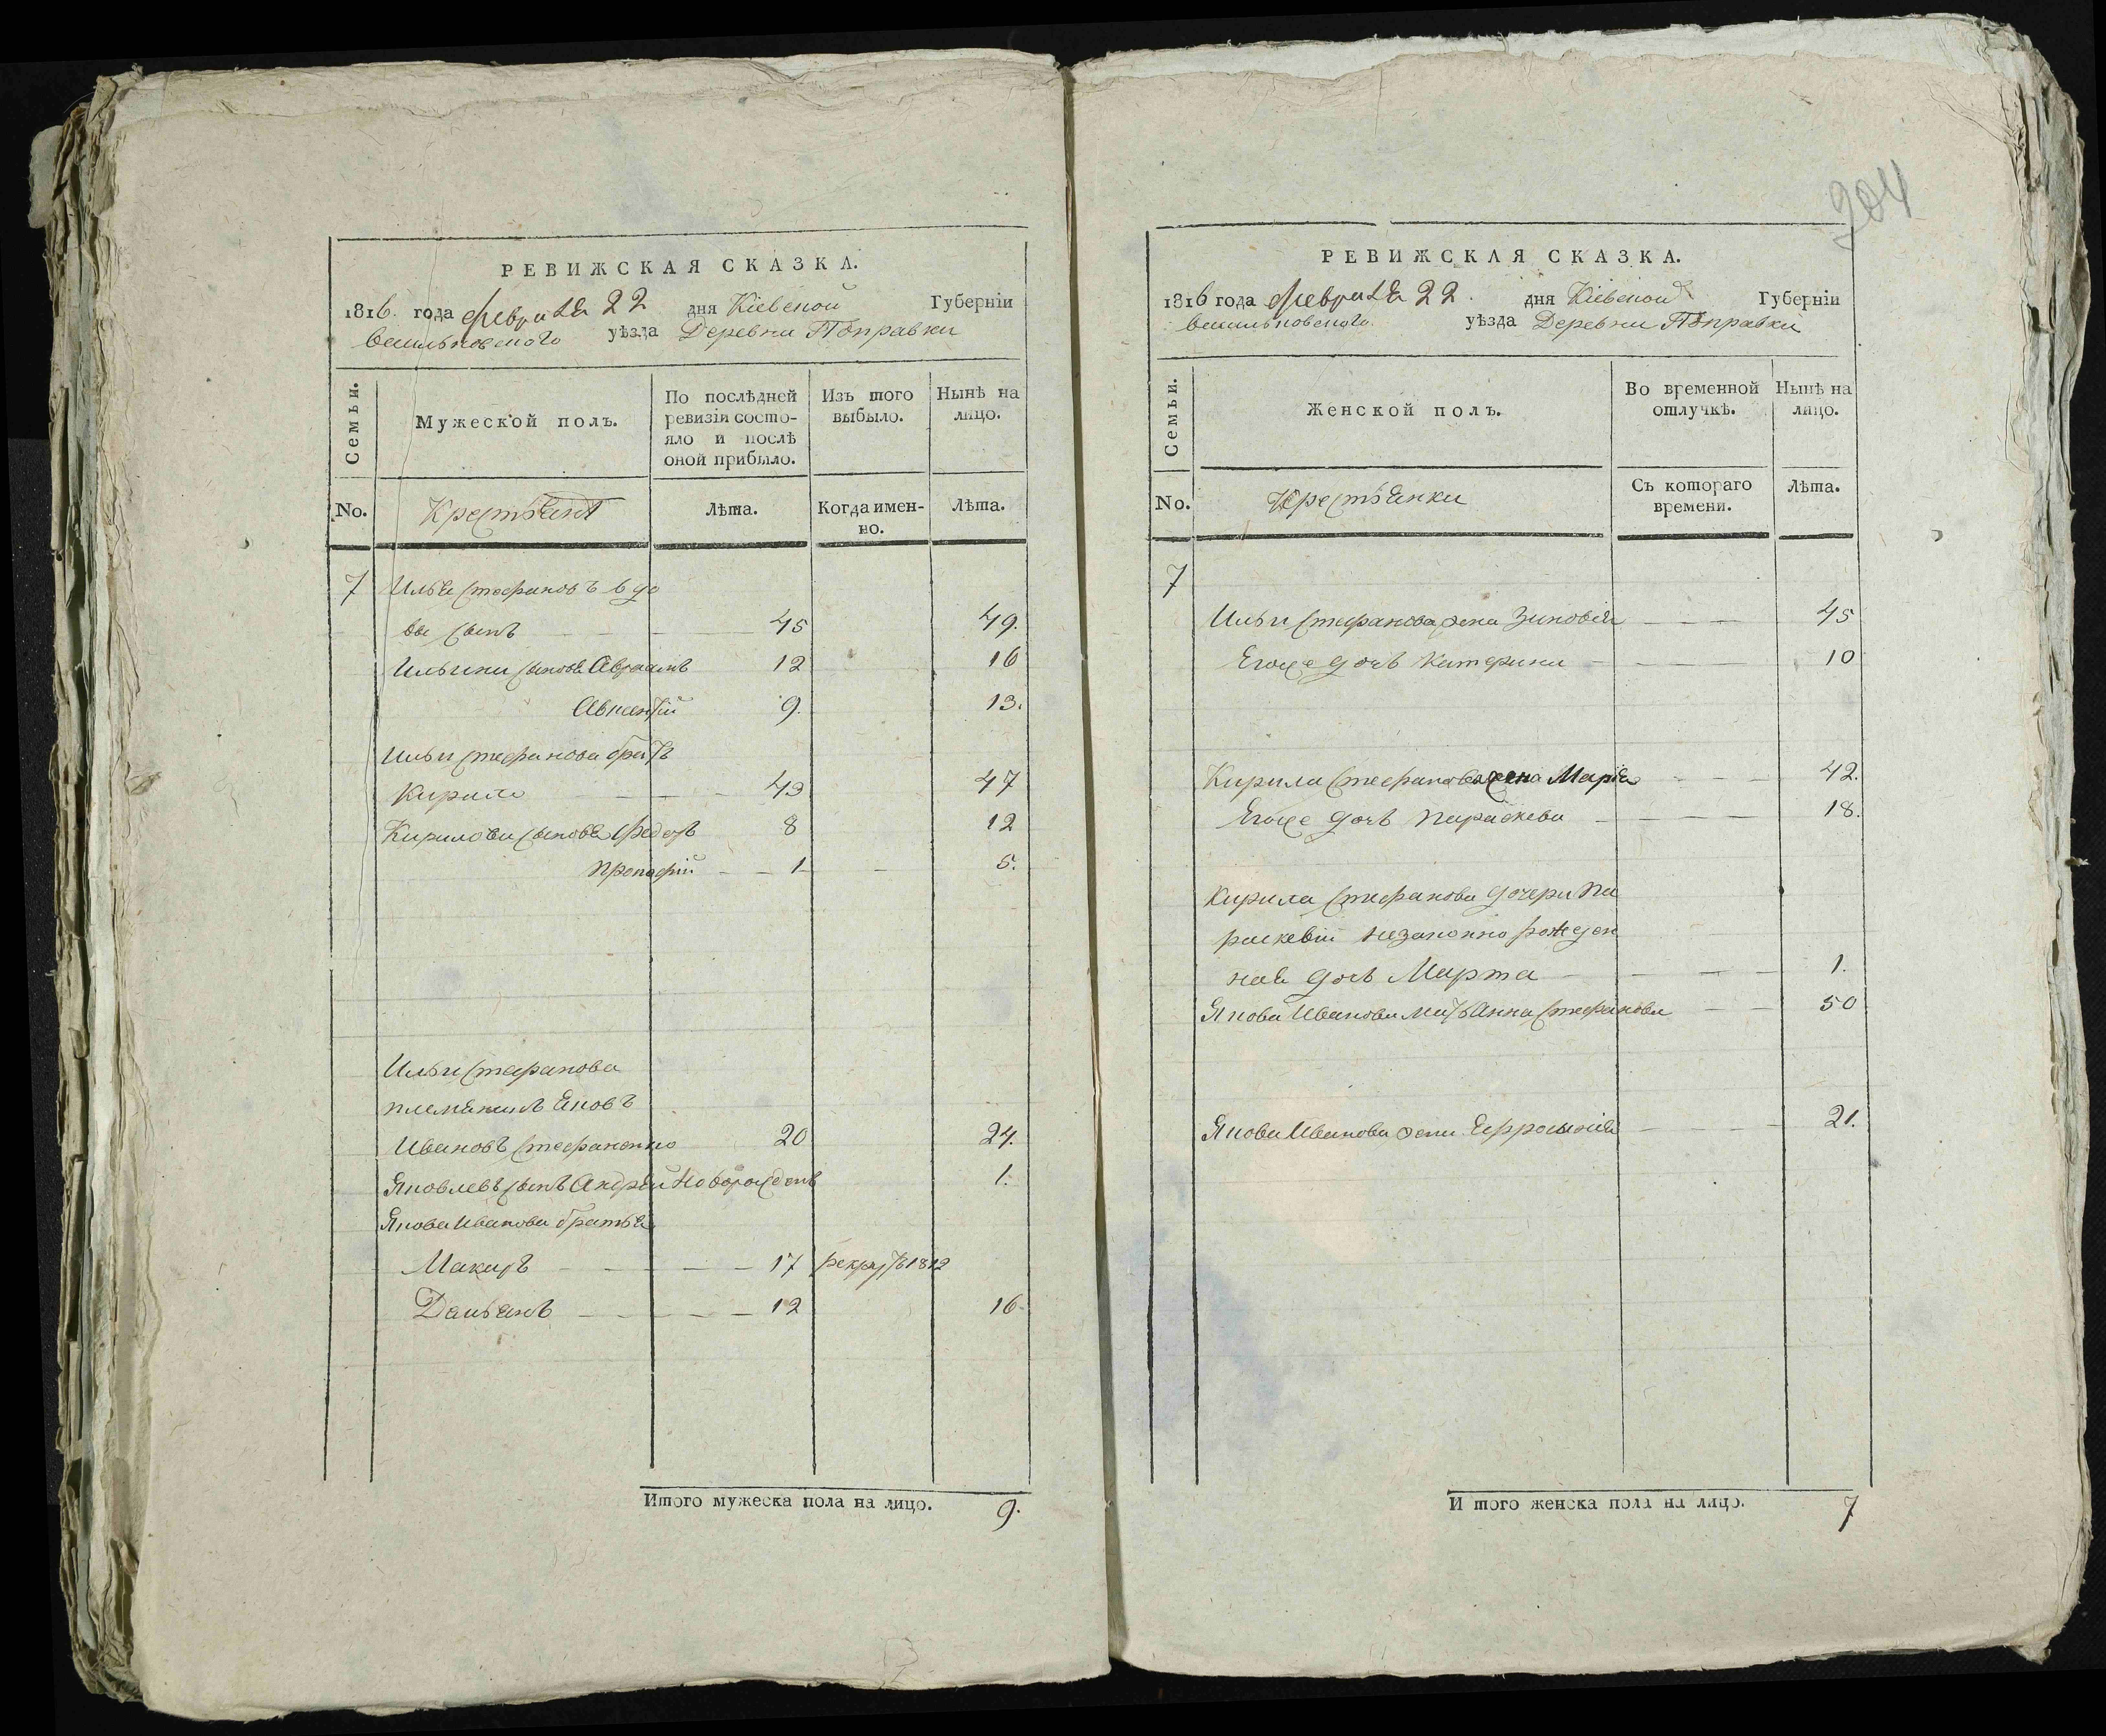 204
РЕВИЖСКАЯ СКАЗКА.
1816. года февраля 22 дня Кіевской Губерніи
васильковского уѣзда Деревни Поправки
Семьи.
Мужеской полъ.
По послѣдней ревизіи состояло и послѣ оной прибыло.
Изъ того выбыло.
Нынѣ на лицо.
No.
Крестьянъ
Лѣта.
Когда именно.
Лѣта.
7 Илья Стефановъ вдо
вы сынъ 45 49.
Ильини сыновья Авраамъ 12 16
Авксентій 9. 13.
Ильи Стефанова братъ
Кирило 43 47
Кирилови сыновья Федоръ 8 12
Прокофій 1 5.
Ильи Стефанова
племяникъ Яковъ
Ивановъ Стефаненко 20 24.
Яковлевъ сынъ Андрей Новорожденъ 1.
Якова Иванова братья
Макаръ 17 рекрутъ 1812
Демьянъ 12 16
Итого мужеска пола на лицо. 9.
РЕВИЖСКАЯ СКАЗКА.
1816 года февраля 22. дня Кіевской Губерніи
васильковского уѣзда Деревни Поправки
Семьи.
Женской полъ.
Во временной отлучкѣ.
Нынѣ на лицо.
No.
Крестьянки
Съ котораго времени.
Лѣта.
7
Ильи Стефанова жена Зиновія 45
Егоже дочь Катерина 10
Кирила Стефанова жена Марія 42.
Егоже дочь Параскева 18.
Кирила Стефанова дочери Па
раскевіи незаконно рожден
ная дочь Марта 1.
Якова Иванова мать Анна Стефанова 50
Якова Иванова жена Ефросинія 21.
Итого женска пола на лицо. 7